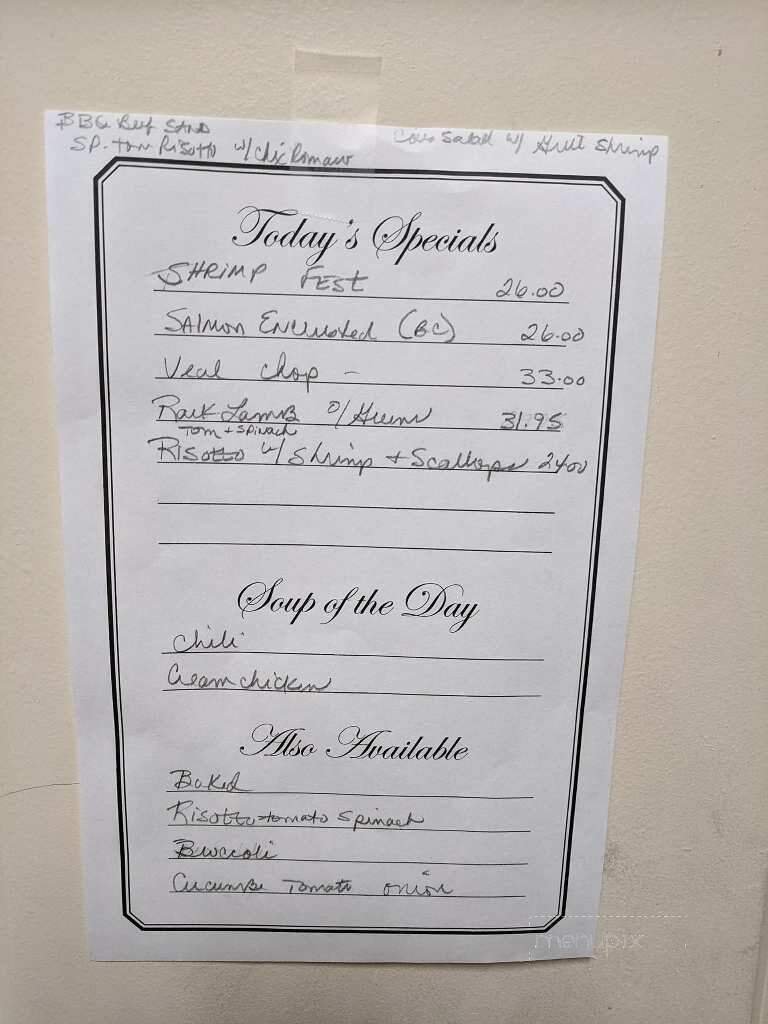 BBQ Beef SAND
SP. Tom Risotto w/ Chix Romano
Salad w/ Grill Shrimp
Today's Specials
SHRIMP FEST 26.00
SALMON Encrusted (BC) 26.00
Veal chop - 33.00
Rack Lamb 31.95
Tom + Spinach
RISOTTO w/ Shrimp + Scallops 24.00
Soup of the Day
Chili
Cream chicken
Also Available
Baked
Risotto-tomato Spinach
Broccoli
Cucumbe Tomato onion
menupix